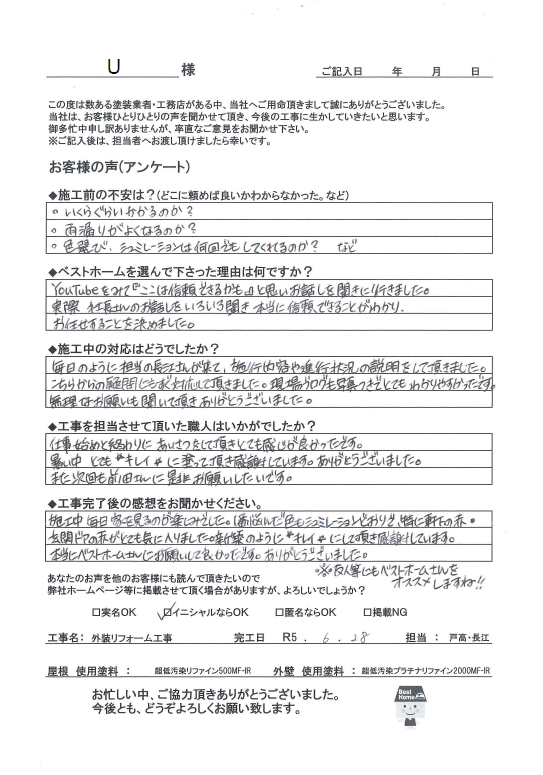 U 様
ご記入日 年 月 日
この度は数ある塗装業者・工務店がある中、当社へご用命頂きまして誠にありがとうございました。
当社は、お客様ひとりひとりの声を聞かせて頂き、今後の工事に生かしていきたいと思います。
御多忙中申し訳ありませんが、率直なご意見をお聞かせ下さい。
※ご記入後は、担当者へお渡し頂けましたら幸いです。
お客様の声(アンケート)
◆施工前の不安は?(どこに頼めば良いかわからなかった。など)
○ いくらぐらいかかるのか?
○ 雨漏りがよくなるのか?
○ 色選び、シュミレーションは何回でもしてくれるのか? など
◆ベストホームを選んで下さった理由は何ですか?
YouTubeをみて『ここは信頼できるかも』と思いお話しを聞きに行きました。
実際 社長さんのお話しをいろいろ聞き 本当に信頼できることがわかり、
お任せすることを決めました。
◆施工中の対応はどうでしたか?
毎日のように担当の長江さんが来て、施行内容や進行状況の説明をして頂きました。
こちらからの疑問にもすぐ対応して頂きました。現場ブログも写真つきでとてもわかりやすかったです。
無理なお願いも聞いて頂きありがとうございました。
◆工事を担当させて頂いた職人はいかがでしたか?
仕事始めと終わりに あいさつをして頂きとても感じが良かったです。
暑い中 とても *キレイ* に塗って頂き感謝しています。ありがとうございました。
また次回も前田さんに是非お願いしたいです。
◆工事完了後の感想をお聞かせください。
施工中 毎日家を見るのが楽しみでした。1番悩んだ色もシュミレーションどおりで、特に軒下の赤・
玄関ドアの赤がとても気に入りました。新築のように *キレイ* にして頂き感謝しています。
本当にベストホームさんにお願いして良かったです。ありがとうございました。
※※友人等にもベストホームさんを
オススメしますね!!
あなたのお声を他のお客様にも読んで頂きたいので
弊社ホームページ等に掲載させて頂く場合がありますが、よろしいでしょうか?
□実名OK ☑イニシャルならOK □匿名ならOK □掲載NG
工事名: 外装リフォーム工事 完工日 R5 . 6 . 28 担当: 戸高・長江
屋根 使用塗料: 超低汚染リファイン500MF-IR 外壁 使用塗料: 超低汚染プラチナリファイン2000MF-IR
お忙しい中、ご協力頂きありがとうございました。
今後とも、どうぞよろしくお願い致します。
Best Home